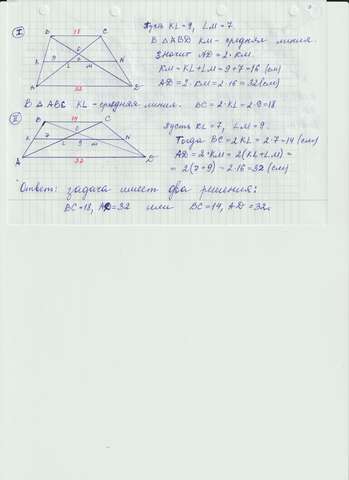 I
B 18 C
O
K 9 L 7 M N
A 32 D
Пусть KL=9, LM=7.
В △ABD KM – средняя линия.
Значит AD=2·KM.
KM=KL+LM=9+7=16 (см)
AD=2·KM=2·16=32 (см)
В △ABC KL – средняя линия. BC=2·KL=2·9=18
II
B 14 C
O
K 7 L 9 M N
A 32 D
Пусть KL=7, LM=9.
Тогда BC=2KL=2·7=14 (см)
AD=2·KM=2(KL+LM)=
=2(7+9)=2·16=32 (см)
Ответ: задача имеет два решения:
BC=18, AD=32 или BC=14, AD=32.